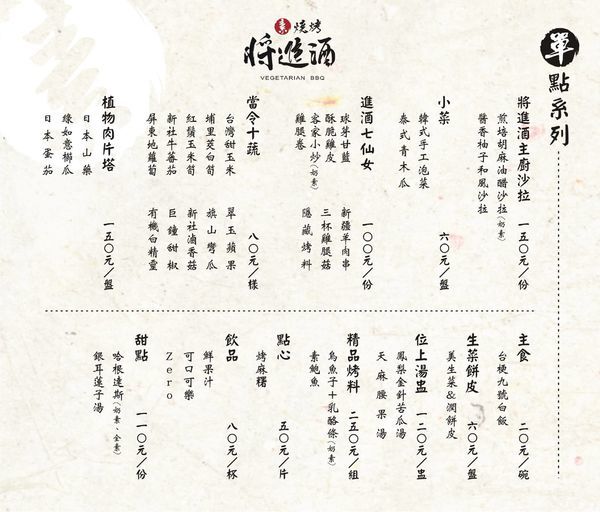 素 燒烤
將進酒
VEGETARIAN BBQ
單點系列
將進酒主廚沙拉 一五○元／份
煎焙胡麻油醋沙拉(奶素)
醬香柚子和風沙拉
小菜 六○元／盤
韓式手工泡菜
泰式青木瓜
進酒七仙女 一○○元／份
球芽甘藍 新疆羊肉串
酥脆雞皮 三杯雞腿菇
客家小炒(奶素) 隱藏烤料
雞腿卷
當令十蔬 八○元／樣
台灣甜玉米 翠玉蘋果
埔里茭白筍 旗山彎瓜
紅鬚玉米筍 新社滷香菇
新社牛蕃茄 巨鐘甜椒
屏東地蘿蔔 有機白精靈
植物肉片塔 一五○元／盤
日本山藥
綠如意櫛瓜
日本蛋茄
主食 二○元／碗
台梗九號白飯
生菜餅皮 六○元／盤
美生菜&潤餅皮
位上湯盅 一二○元／盅
鳳梨金針苦瓜湯
天麻腰果湯
精品烤料 二五○元／組
烏魚子＋乳酪條(奶素)
素鮑魚
點心 五○元／片
烤麻糬
飲品 八○元／杯
鮮果汁
可口可樂
Zero
甜點 一一○元／份
哈根達斯(奶素、全素)
銀耳蓮子湯